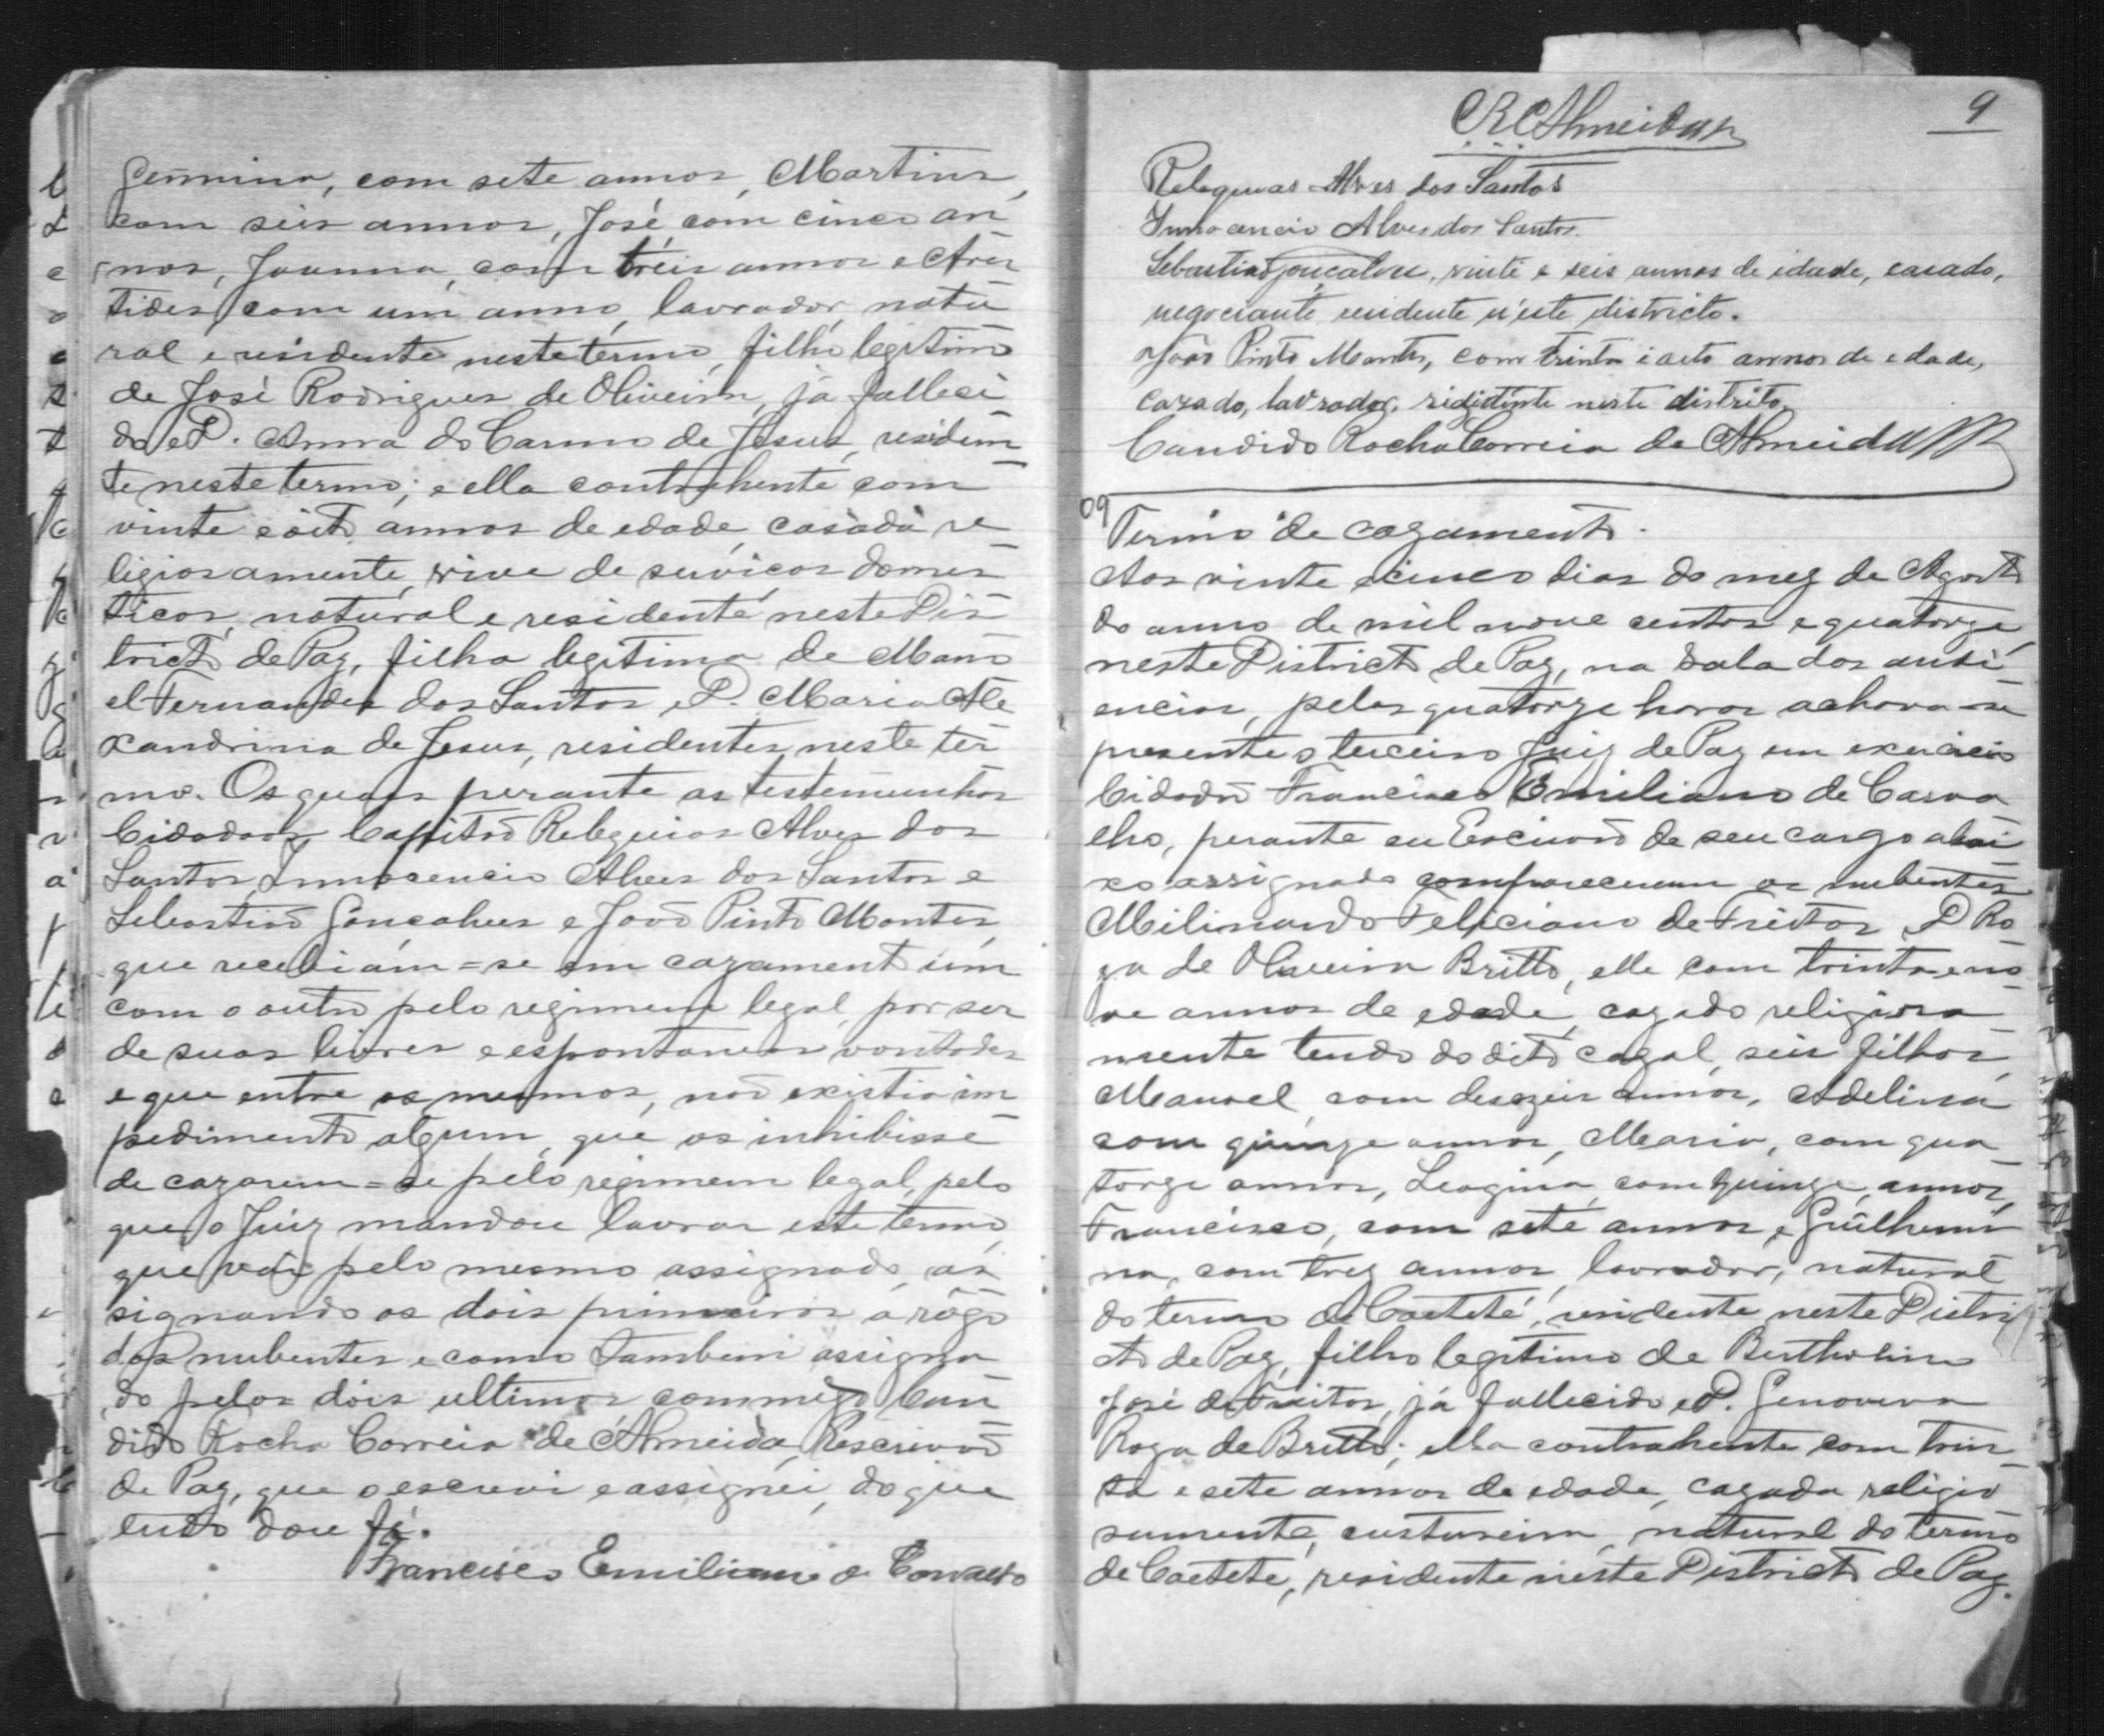 Germina, com sete annos, Martins,
com seis annos, José com cinco an
nos, Joanna, com treis annos e Aris
tides com um anno, lavrador, natu
ral e residente neste termo, filho legitimo
de José Rodrigues de Oliveira, já falleci
do e D. Anna do Carmo de Jesus, residen
te neste termo; e ella contrahente com
vinte e oito annos de edade, casada re
ligiosamente, vive de serviços domes
ticos, natural e residente neste Dis
tricto de Paz, filha legitima de Mano
el Fernandes dos Santos e D. Maria Ale
xandrina de Jesus, residentes neste ter
mo. Os quaes perante as testemunhas
Cidadãos, Capitão Reliquias Alves dos
Santos, Innocencio Alves dos Santos e
Sebastião Gonçalves e João Pinto Montes,
que recebiam=se em cazamento um
com o outro pelo regimem legal, por ser
de suas livres e espontaneas vontades
e que entre os mesmos, não existia im
pedimento algum, que os inhibisse
de cazarem=se pelo regimem legal, pelo
que o Juiz mandou lavrar este termo,
que vai pelo mesmo assignado, as
signando os dois primeiros á rôgo
dos nubentes e como tambem assigna
do pelos dois ultimos commigo Can
dido Rocha Correia de Almeida, Escrivão
de Paz, que o escrevi e assignei, do que
tudo dou fé.
Francisco Emiliano de Carvalho
CRCAlmeida
9
Reliquias Alves dos Santos
Innocencio Alves dos Santos.
Sebastião Gonçalves, vinte e seis annos de idade, casado,
negociante residente n'este districto.
João Pinto Montes, com trinta i oito annos de edade,
cazado, lavrador, risidente neste distrito,
Candido Rocha Correia de Almeida
09
Termo de cazamento.
Aos vinte e cinco dias do mez de Agosto
do anno de mil nove centos e quatorze,
neste Districto de Paz, na sala das audi
encias, pelas quatorze horas achava-se
presente o terceiro Juiz de Paz em exercicio
Cidadão Francisco Emiliano de Carva
lho, perante eu Escrivão de seu cargo abai
xo assignado compareceram os nubentes
Milinando Feliciano de Freitas e D Ro
za de Oliveira Britto, elle com trinta e no
ve annos de edade, cazado religiosa
mente tendo do dito cazal, seis filhos,
Manoel, com desezeis annos, Adelina
com quinze annos, Maria, com qua
torze annos, Leogina, com quinze annos,
Francisco, com sete annos e Guilhermi
na, com trez annos, lavrador, natural
do termo de Caeteté, residente neste Distri
cto de Paz, filho legitimo de Bertholino
José de Freitas, já fallecido e D. Genoveva
Roza de Britto; ella contrahente com trin
ta e sete annos de edade, cazada religio
samente, custureira, natural do termo
de Caeteté, residente neste Districto de Paz,